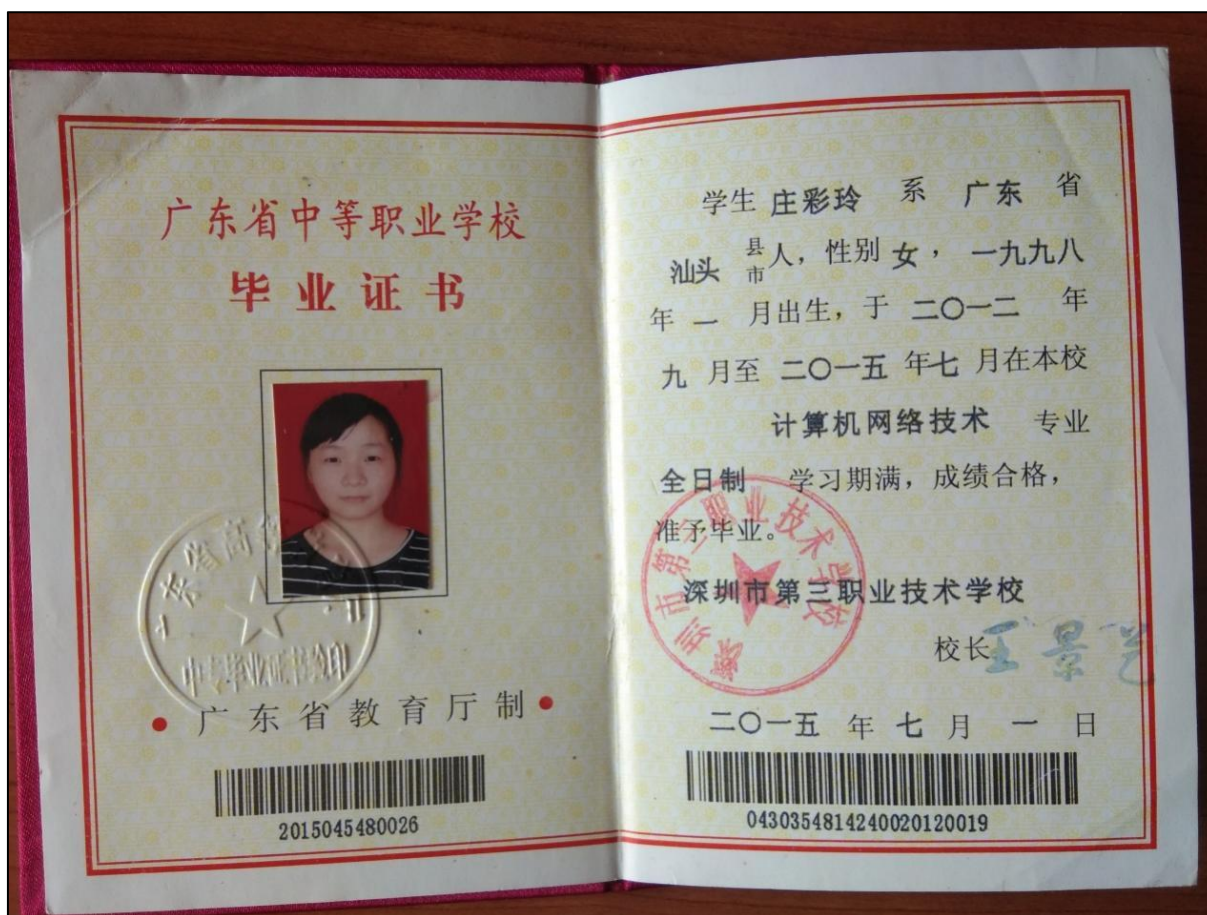 广东省中等职业学校
毕业证书
中专毕业证书验印
广东省教育厅制
2015045480026
学生 庄彩玲 系 广东 省
汕头 县市人，性别 女，一九九八
年 一 月出生，于 二〇一二 年
九 月至 二〇一五 年七 月在本校
计算机网络技术 专业
全日制 学习期满，成绩合格，
准予毕业。
深圳市第三职业技术学校
深圳市第三职业技术学校
校长
二〇一五 年 七 月 一 日
0430354814240020120019